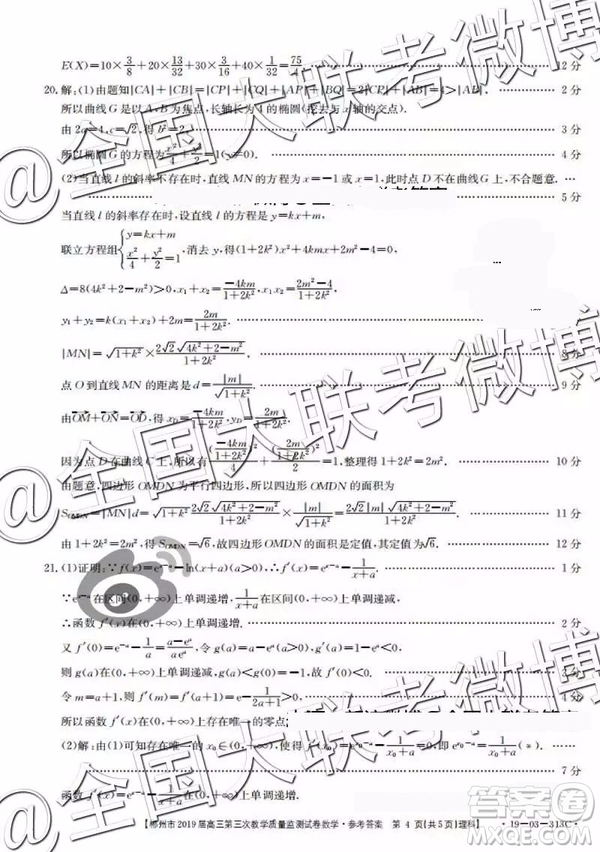 E(X)=10×3/8+20×13/32+30×3/16+40×1/32=75/4. 12分
20.解:(1)由题知|CA|+|CB|=|CP|+|CQ|+|AP|+|BQ|=2|CP|+|AB|=4>|AB|, 2分
所以曲线G是以A,B为焦点,长轴长为4的椭圆(挖去与x轴的交点).
由2a=4,c=√2,得b²=2.
所以椭圆G的方程为x²/4+y²/2=1(y≠0).
(2)当直线l的斜率不存在时,直线MN的方程为x=-1或x=1,此时点D不在曲线G上,不合题意. 5分
当直线l的斜率存在时,设直线l的方程为y=kx+m,
联立方程组{y=kx+m x²/4+y²/2=1,消去y,得(1+2k²)x²+4kmx+2m²-4=0,
Δ=8(4k²+2-m²)>0,x₁+x₂=-4km/(1+2k²),x₁x₂=(2m²-4)/(1+2k²).
y₁+y₂=k(x₁+x₂)+2m=2m/(1+2k²).
|MN|=√(1+k²)×2√2√(4k²+2-m²)/(1+2k²). 8分
点O到直线MN的距离是d=|m|/√(1+k²). 9分
由OM+ON=OD,得x_D=-4km/(1+2k²),y_D=2m/(1+2k²).
因为点D在曲线C上,所以有(-4km/(1+2k²))²/4+(2m/(1+2k²))²/2=1,整理得1+2k²=2m². 10分
由题意,四边形OMDN为平行四边形,所以四边形OMDN的面积为
S_OMDN=|MN|d=√(1+k²)×2√2√(4k²+2-m²)/(1+2k²)×|m|/√(1+k²) 11分
由1+2k²=2m²,得S_OMDN=√6,故四边形OMDN的面积是定值,其定值为√6. 12分
21.(1)证明:∵f(x)=e^(x-a)-ln(x+a)(a>0),∴f′(x)=e^(x-a)-1/(x+a). 1分
∵e^(x-a)在区间(0,+∞)上单调递增,1/(x+a)在区间(0,+∞)
∴函数f′(x)在(0,+∞)上单调递增. 2分
又f′(0)=e^(-a)-1/a=(a-e^a)/(ae^a),令g(a)=a-e^a(a>0),g′(a)=1-e^a<0,
则g(a)在(0,+∞)上单调递减,g(a)<g(0)=-1,故f′(0)<0. 3分
令m=a+1,则f′(m)=f′(a+1)=e-1/(2a+1)>0,
所以函数f′(x)在(0,+∞)上存在唯一的零点.
(2)解:由(1)可知存在唯一的x₀∈(0,+∞),使得f′(x₀)=e^(x₀-a)-1/(x₀+a)=0,即e^(x₀-a)=1/(x₀+a)(*).
7分
函数f′(x)=e^(x-a)-1/(x+a)在(0,+∞)上单调递增.
【郴州市2019届高三第三次教学质量监测试卷数学·参考答案 第4页(共5页)理科】 ·19-03-313C·
@全国大联考微博
@全国大联考微博
答案圈
MXQE.COM